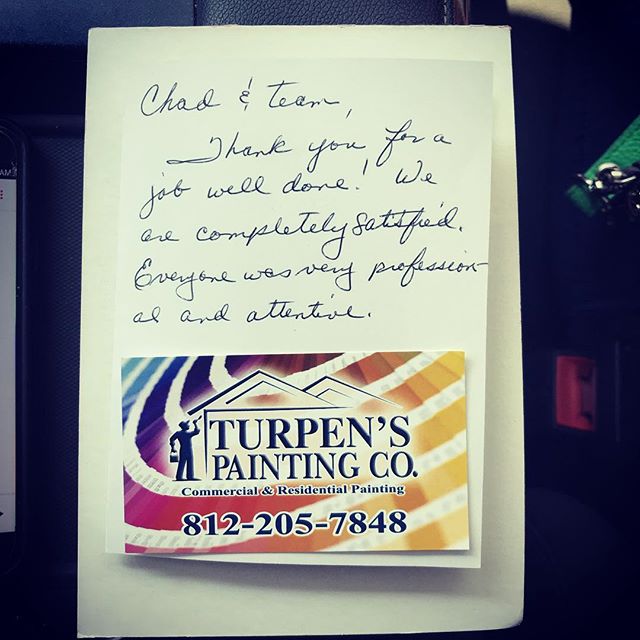 Chad & team,
Thank you for a
job well done! We
are completely satisfied.
Everyone was very profession-
al and attentive.
TURPEN'S
PAINTING CO.
Commercial & Residential Painting
812-205-7848
AM